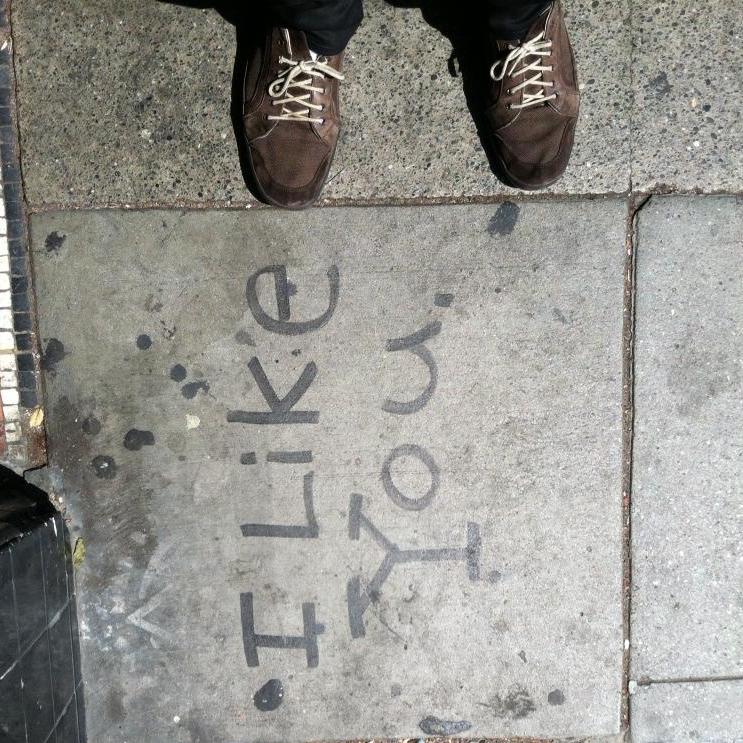 I Like
You.